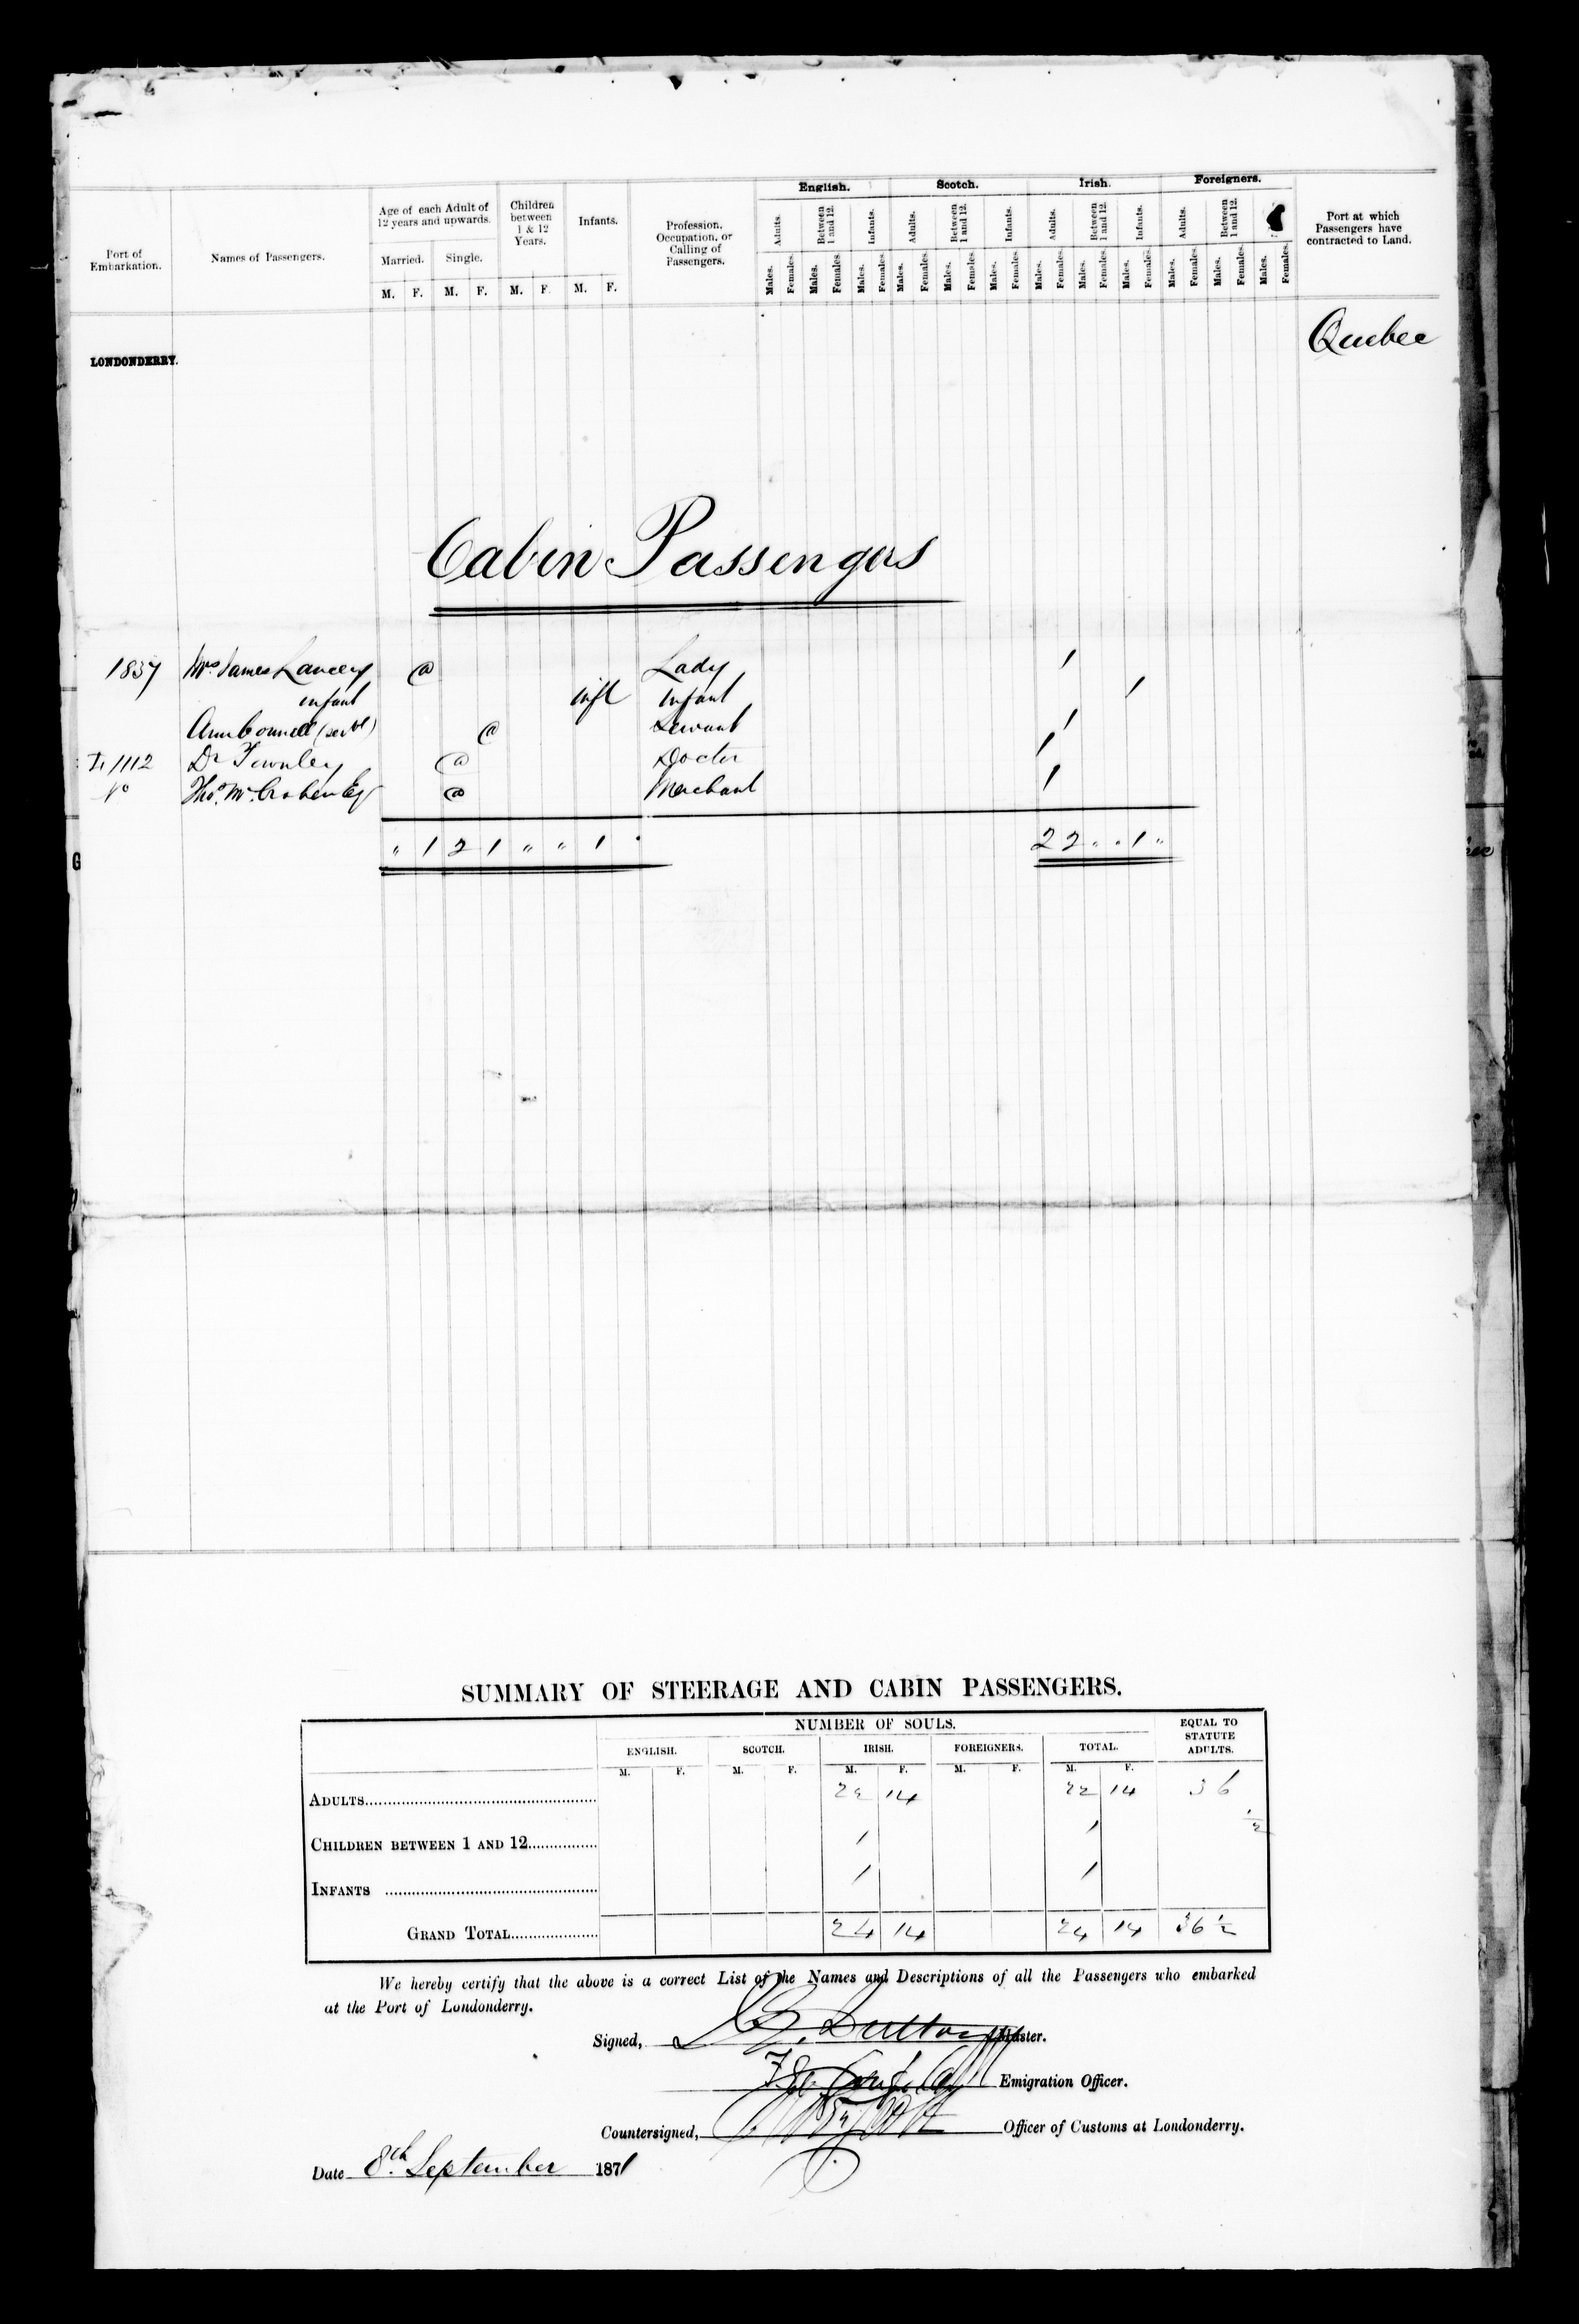 English. Scotch. Irish. Foreigners.
Port of Embarkation. Names of Passengers. Age of each Adult of 12 years and upwards. Children between 1 & 12 Years. Infants. Profession, Occupation, or Calling of Passengers. Adults. Between 1 and 12. Infants. Adults. Between 1 and 12. Infants. Adults. Between 1 and 12. Infants. Adults. Between 1 and 12. Port at which Passengers have contracted to Land.
Married. Single.
M. F. M. F. M. F. M. F. Males. Females. Males. Females. Males. Females. Males. Females. Males. Females. Males. Females. Males. Females. Males. Females. Males. Females. Males. Females. Males. Females. Males. Females.
Quebec
LONDONDERRY.
Cabin Passengers
1837 Mrs James Lancey @ Lady 1
infant inft Infant 1
Ann Connell (servt) @ Servant 1
1112 Dr Townley @ Doctor 1
Thos. Mc @ Merchant 1
" 1 2 1 " " 1 " 2 2 " " 1 "
SUMMARY OF STEERAGE AND CABIN PASSENGERS.
NUMBER OF SOULS. EQUAL TO STATUTE ADULTS.
ENGLISH. SCOTCH. IRISH. FOREIGNERS. TOTAL.
M. F. M. F. M. F. M. F. M. F.
ADULTS 22 14 22 14 36
CHILDREN BETWEEN 1 AND 12 1 1 ½
INFANTS 1 1
GRAND TOTAL 24 14 24 14 36½
We hereby certify that the above is a correct List of the Names and Descriptions of all the Passengers who embarked
at the Port of Londonderry.
Signed, Dutton Master.
Emigration Officer.
Countersigned, Officer of Customs at Londonderry.
Date 8th September 1871